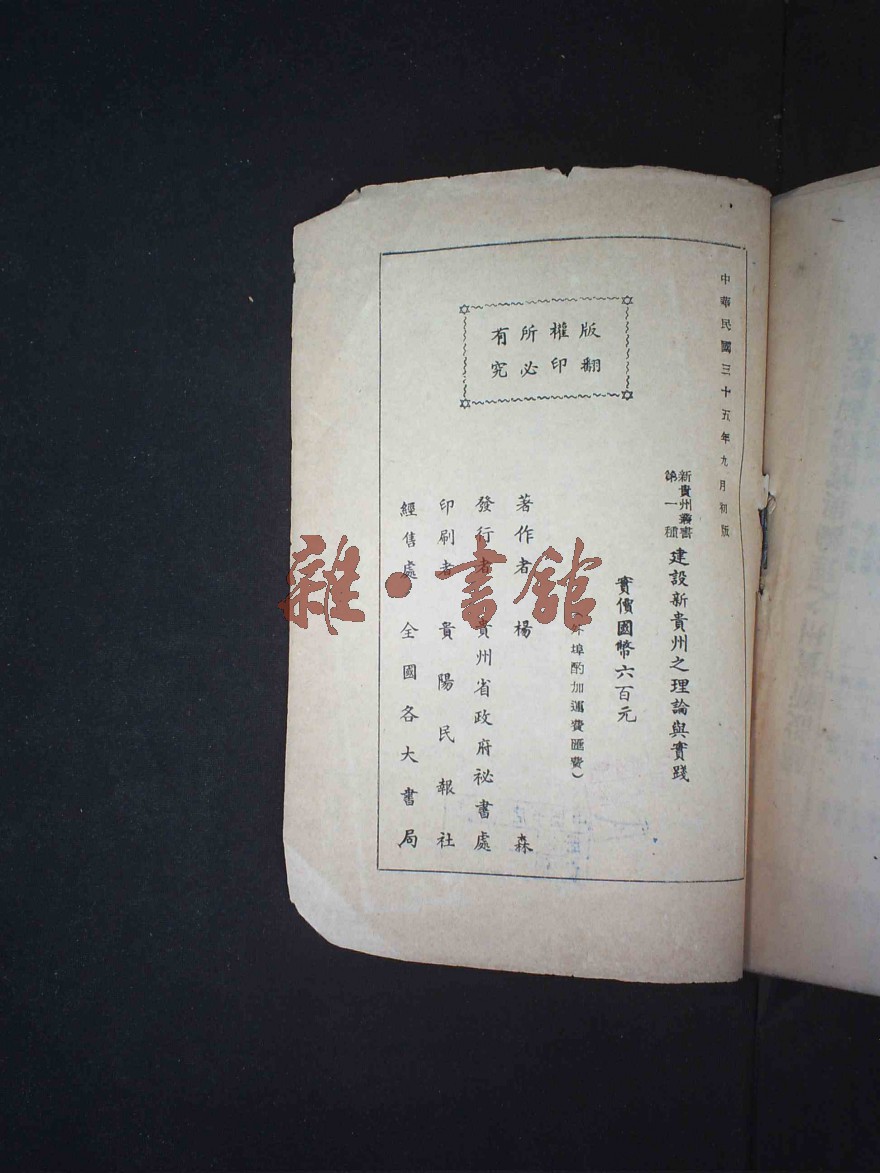 中華民國三十五年九月初版
新貴州叢書
第一種
建設新貴州之理論與實踐
實價國幣六百元
埠酌加運費匯費）
著作者 楊森
發行者 貴州省政府祕書處
印刷者 貴陽民報社
經售處 全國各大書局
版權所有
翻印必究
雜·書館